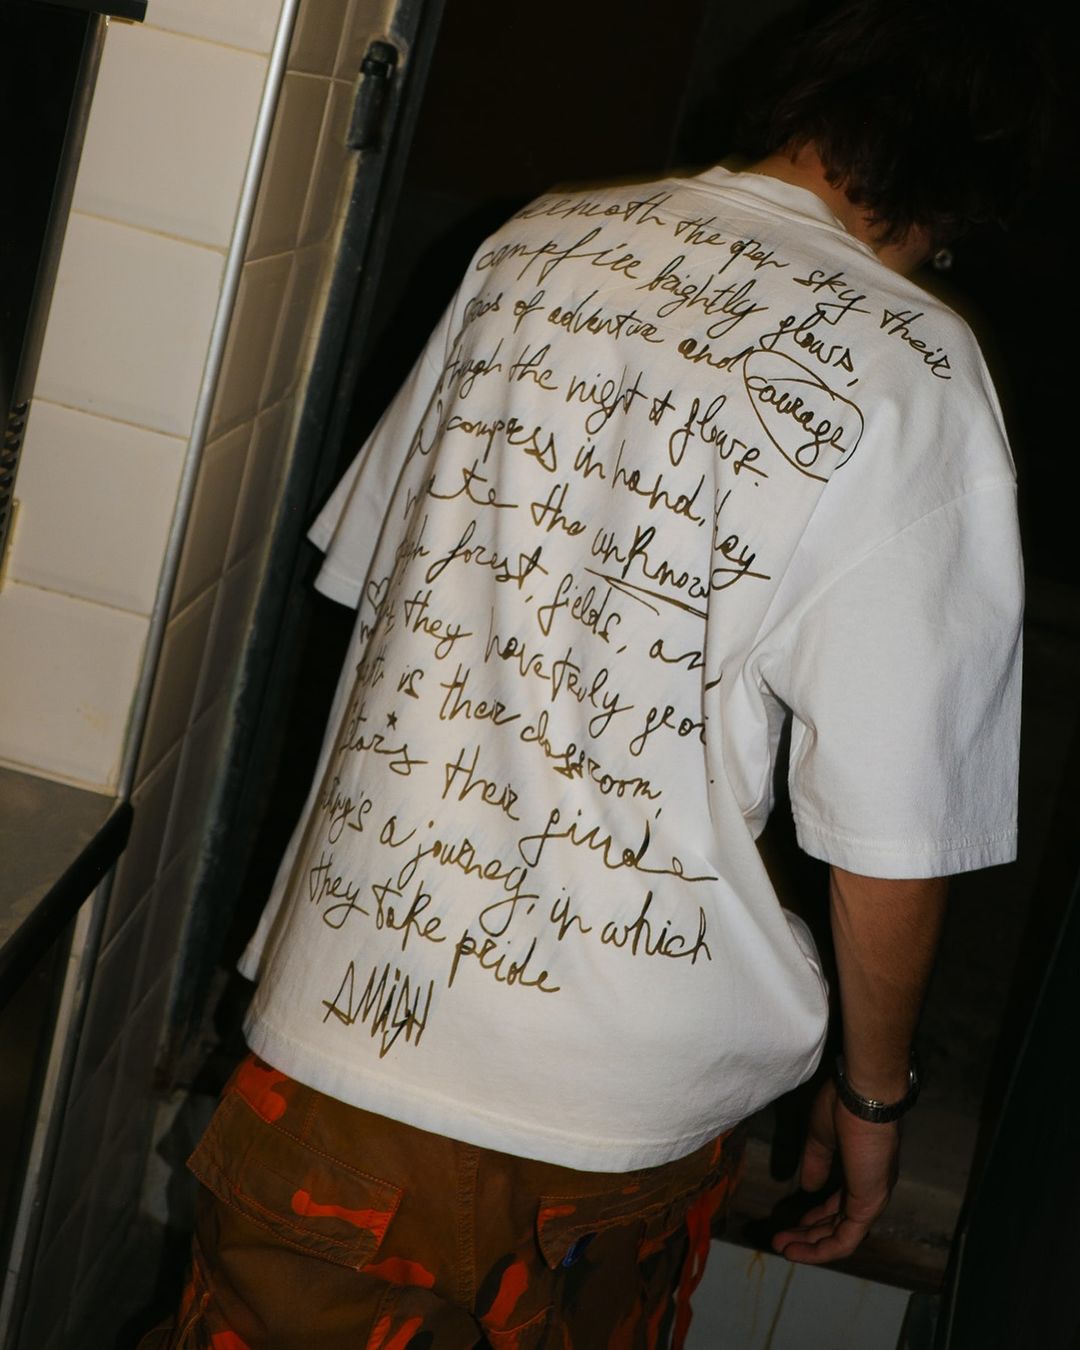 beneath the open sky their
campfire brightly glows,
of adventure and courage
the night it flows.
compass in hand, they
the unknow
forest, fields, an
they have truly
is their classroom,
stars their giude
a journey, in which
they take pride
AMiSH